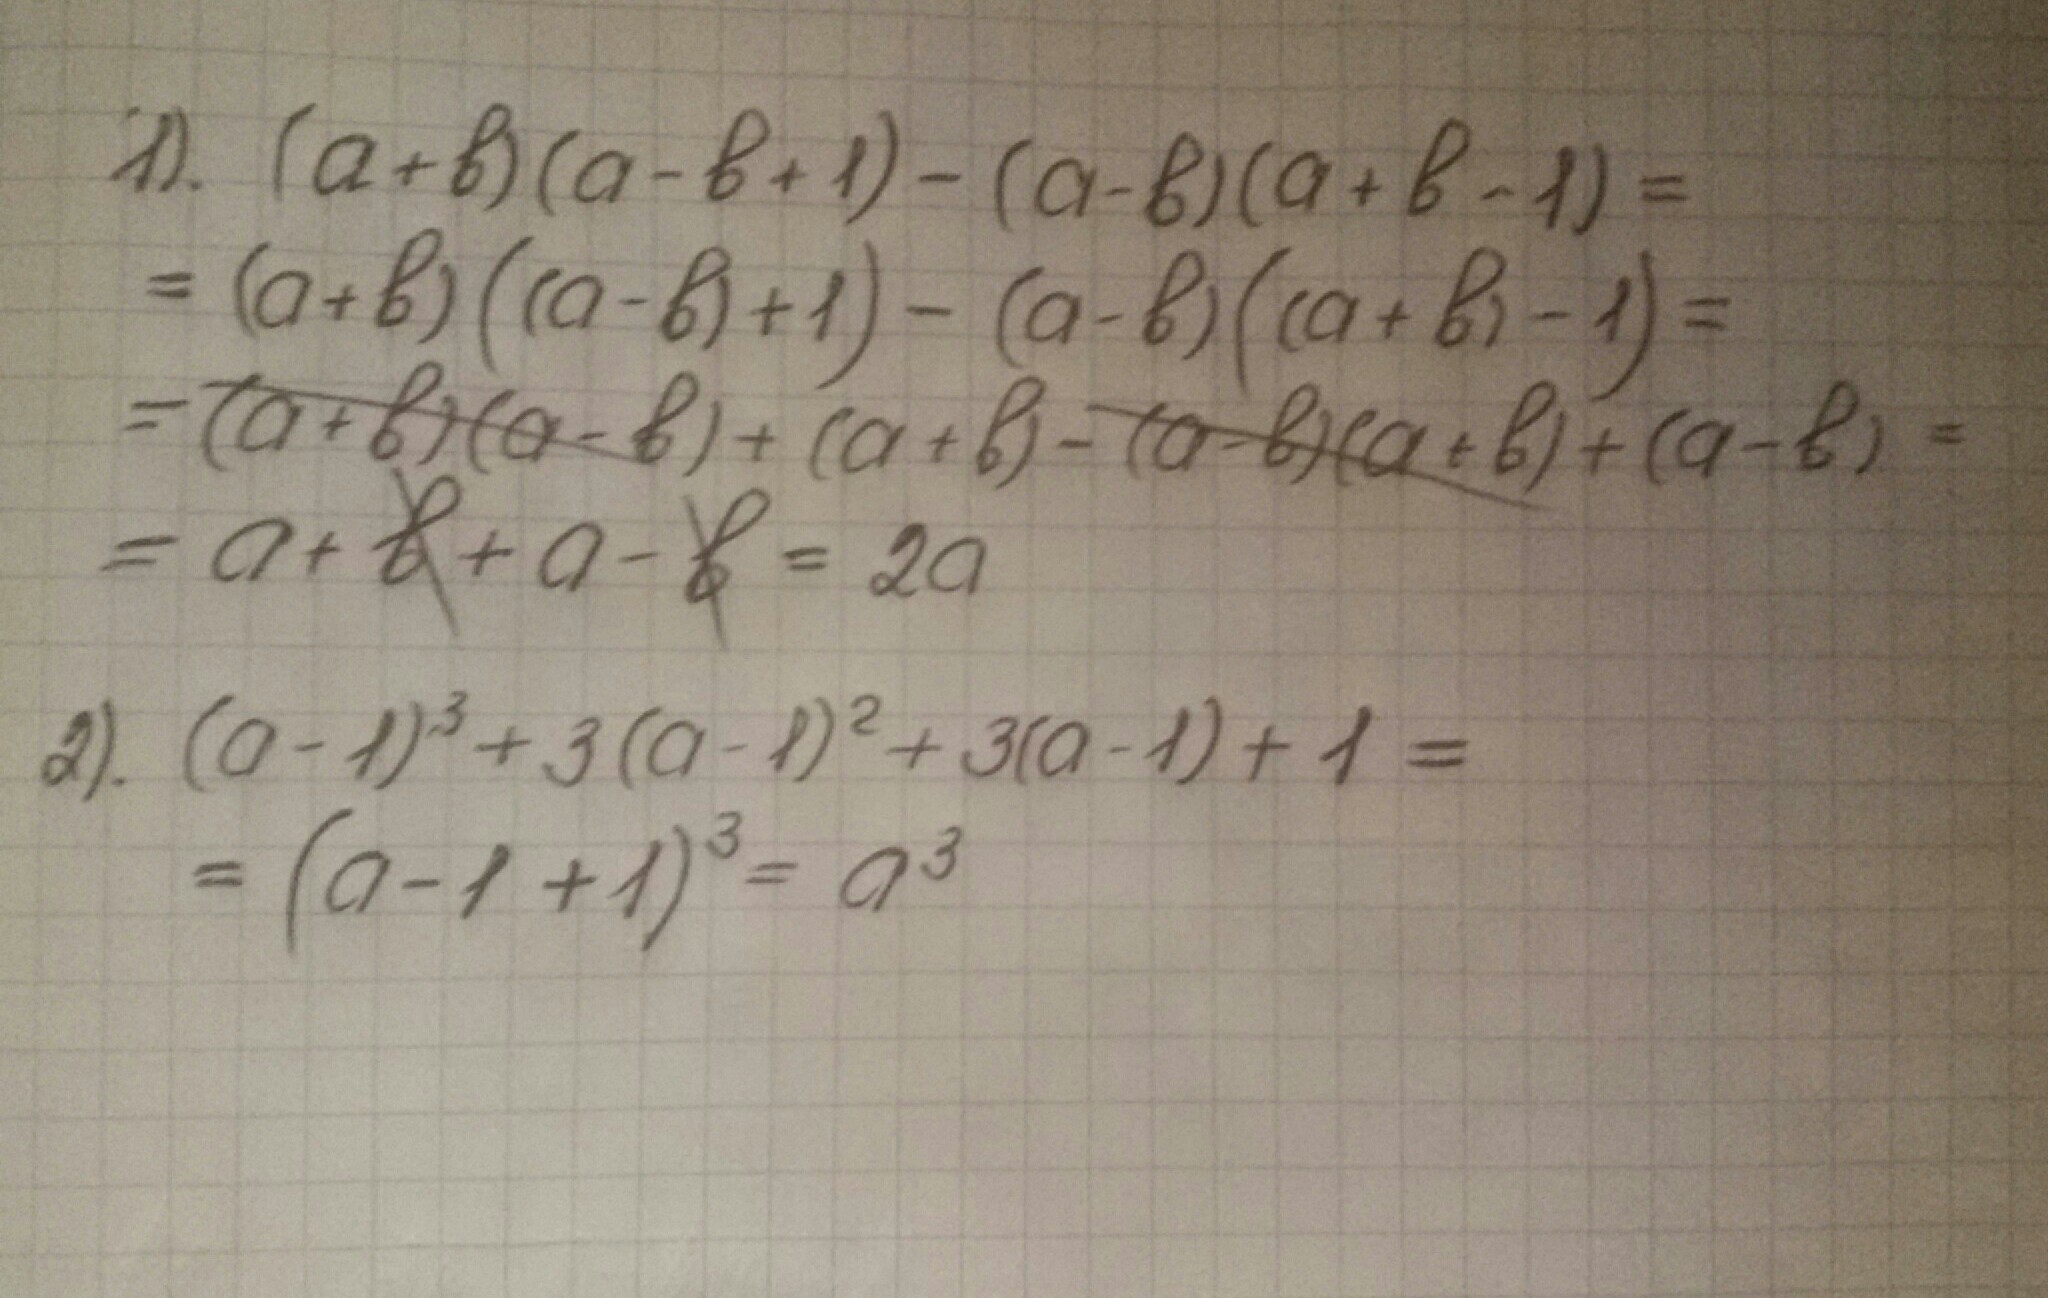 1). (a+b)(a-b+1)-(a-b)(a+b-1)=
=(a+b)((a-b)+1)-(a-b)((a+b)-1)=
=(a+b)(a-b)+(a+b)-(a-b)(a+b)+(a-b)=
=a+b+a-b=2a
2). (a-1)³+3(a-1)²+3(a-1)+1=
=(a-1+1)³=a³